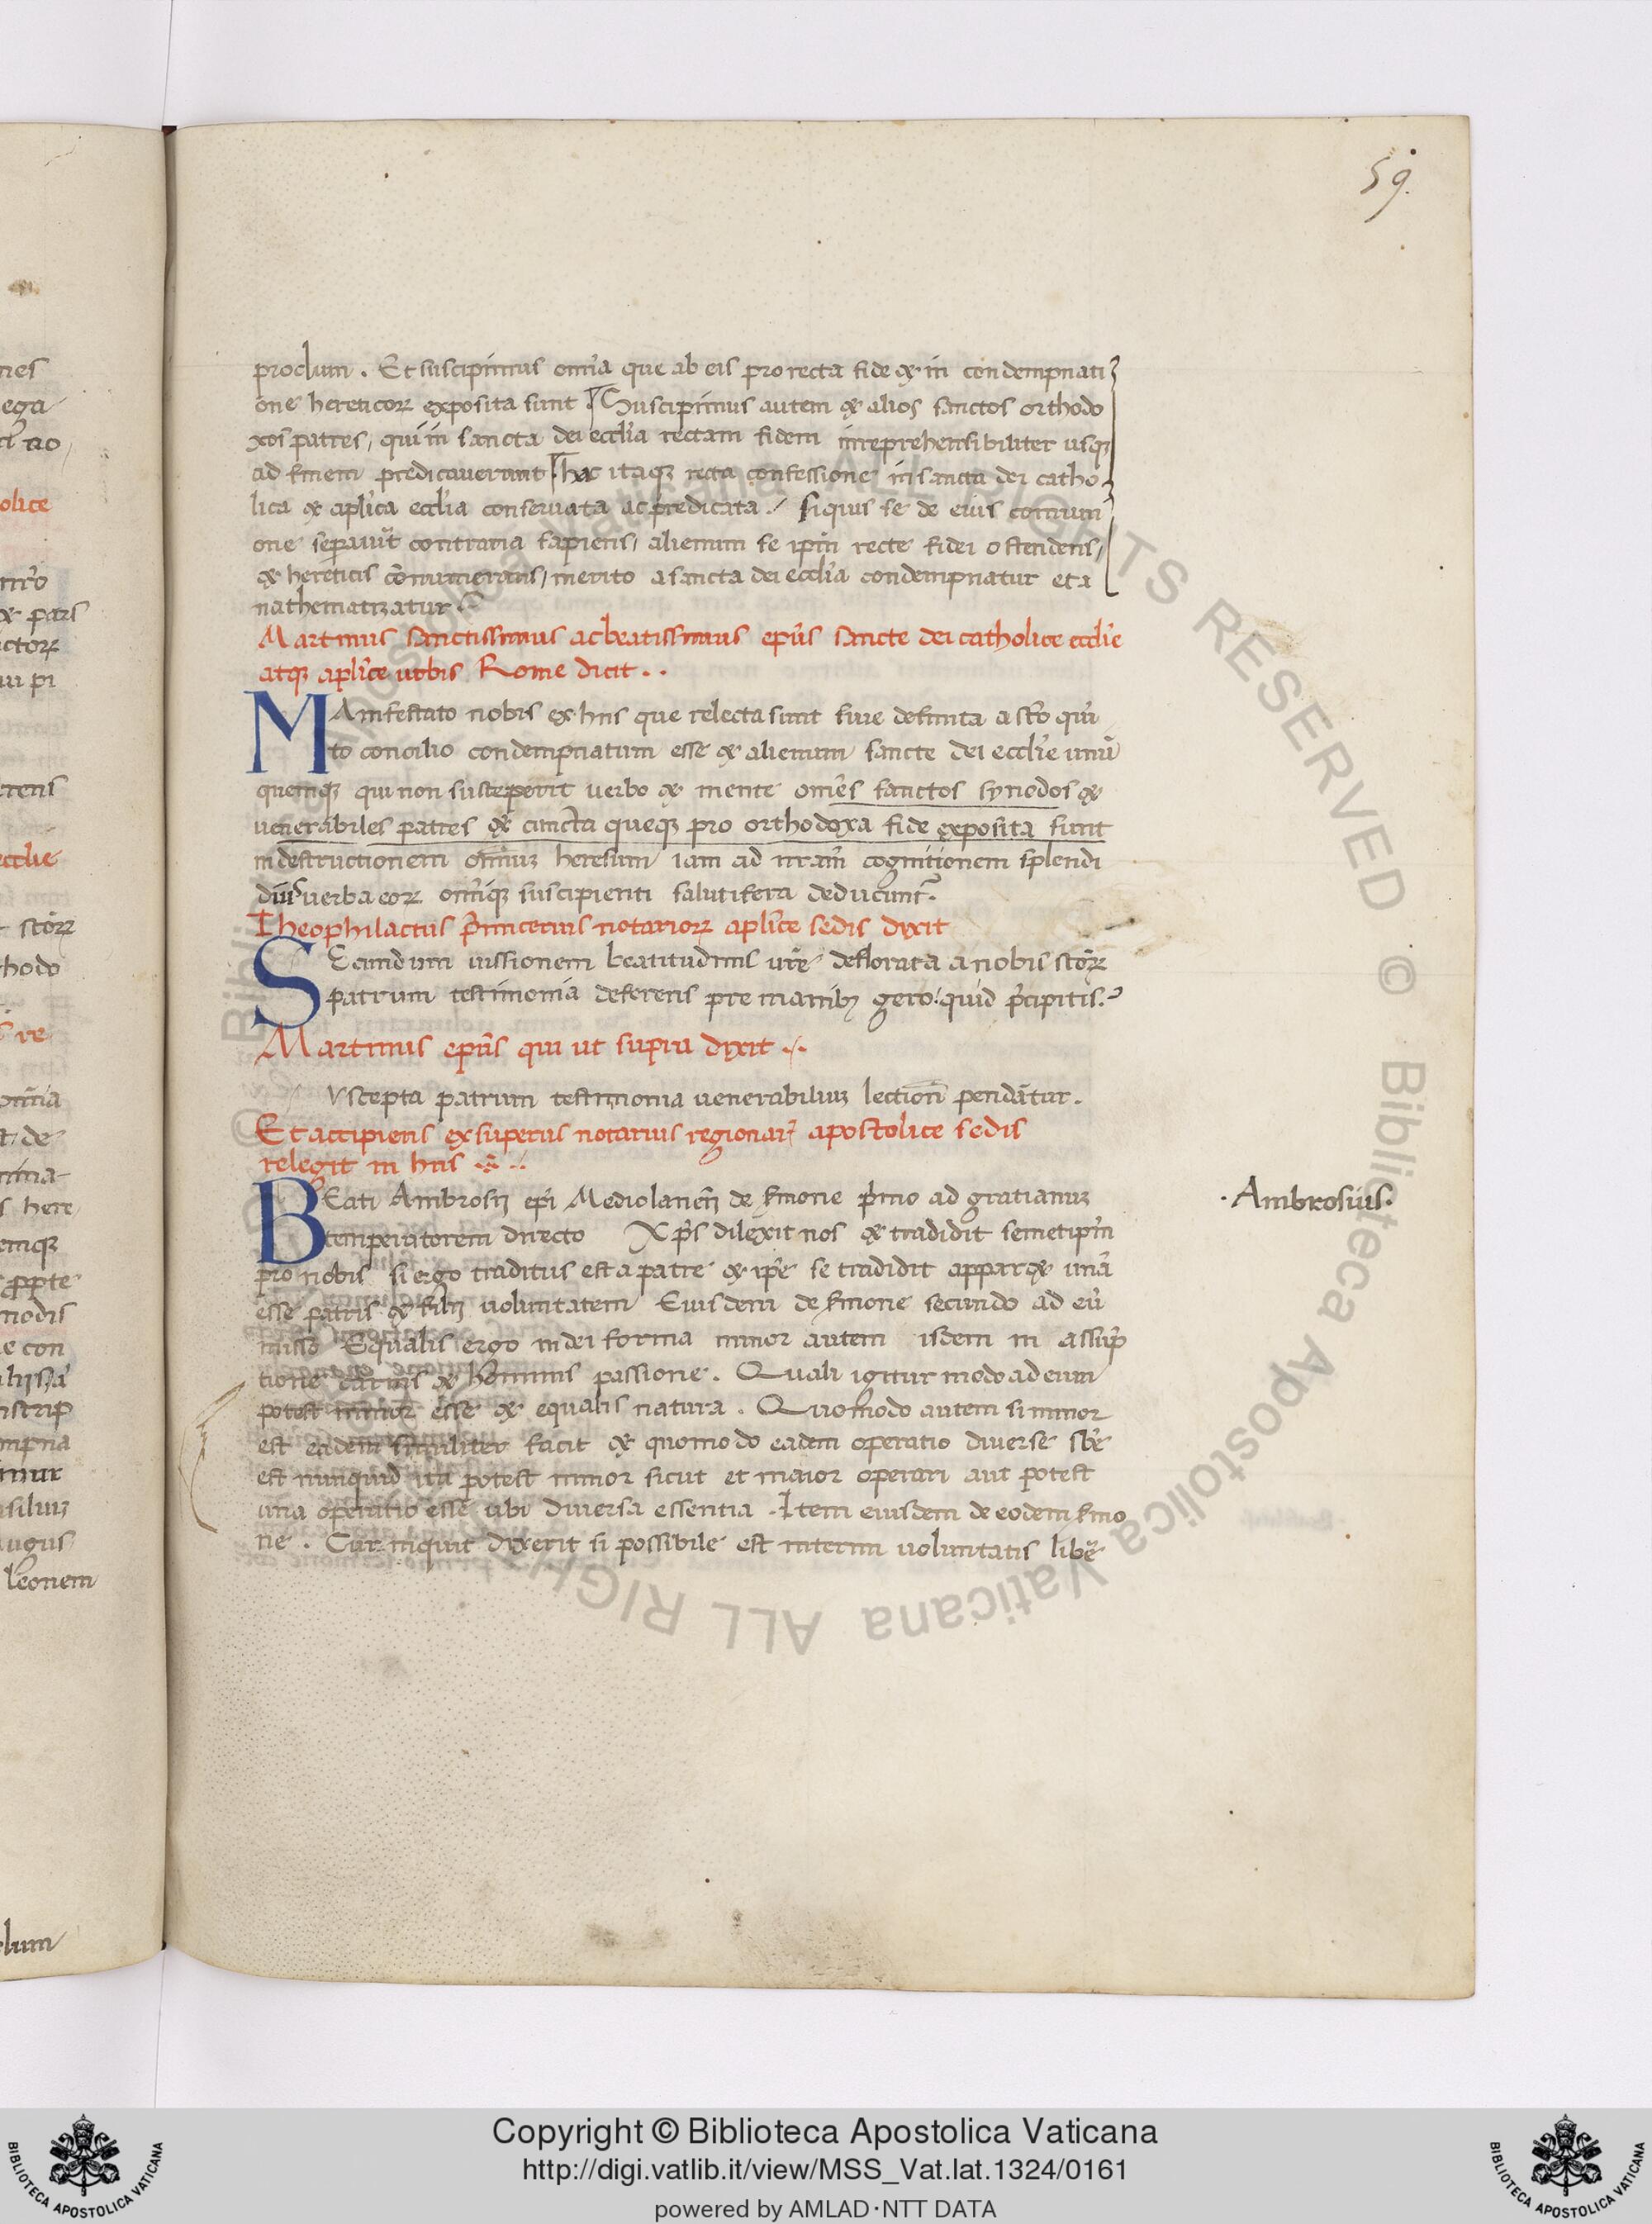 59.
proclum. Et suscipimus om̄ia que ab eis pro recta fide & in condempnati
one hereticorꝝ exposita sunt Suscipimus autem & alios sanctos orthodo
xos patres, qui in sancta dei eccl̄ia rectam fidem inreprehensibiliter usqꝫ
ad finem predicaverunt hac itaqꝫ recta confessione in sancta dei catho
lica & apl̄ica eccl̄ia conservata ac predicata. siquis se de eius comuni
one contraria sapiens, alienum se ip̄m recte fidei ostendens,
& hereticis merito a sancta dei eccl̄ia condempnatur et a
nathematizatur
Martinus sanctissimus ac beatissimus ep̄us sancte dei catholice eccl̄ie
atqꝫ apl̄ice urbis Rome dicit..
MAnifestato nobis ex hiis que relecta sunt sive definita a sc̄o qui̅
to concilio condempnatum esse & alienum sancte dei eccl̄ie unū
quemqꝫ qui non susceperit verbo & mente om̄es sanctos synodos &
venerabiles patres & cuncta queqꝫ pro orthodoxa fide exposita sunt
in destructionem heresum iam ad nr̄am cognitionem splendi
dius verba eorꝝ suscipienti salutifera deducunt.
Theophilactus primicerius notariorꝝ apl̄ice sedis dixit
SEcundum iussionem beatitudinis vr̄e deflorata a nobis sc̄orꝝ
patrum testimonia deferens pre manibꝫ gero. quid p̄cipitis.
Martinus ep̄us qui ut supra dixit
Vscepta patrum testimonia venerabiliuꝫ pendātur.
Et accipiens exsuperius notarius regionar̄ apostolice sedis
relegit in hiis
BEati Ambrosij ep̄i Mediolanen̄ de s̄mone p̄mo ad gratianuꝫ
directo Xp̄s dilexit nos & tradidit semetip̄m
pro nobis si ergo traditus est a patre & ip̄e se tradidit apparꝫ unā
esse patris & filij voluntatem Eiusdem de s̄mone secundo ad eū
misso Equalis ergo in dei forma minor autem isdem in assup̄
tione carnis & hominis passione. Quali igitur modo ad eum
potest minor esse & equalis natura. Quomodo autem si minor
est eadem similiter facit & quomodo eadem operatio diverse sb̄e
est nunquid ita potest minor sicut et maior operari aut potest
una operatio esse ubi diversa essentia. Item eiusdem de eodem s̄mo
ne. Cur inquit dixerit si possibile est voluntatis libē
·Ambrosius·
Copyright © Biblioteca Apostolica Vaticana
http://digi.vatlib.it/view/MSS_Vat.lat.1324/0161
powered by AMLAD·NTT DATA
BIBLIOTECA APOSTOLICA VATICANA
BIBLIOTECA APOSTOLICA VATICANA
© Biblioteca Apostolica Vaticana ALL RIGHTS RESERVED © Biblioteca Apostolica Vaticana ALL RIGHTS